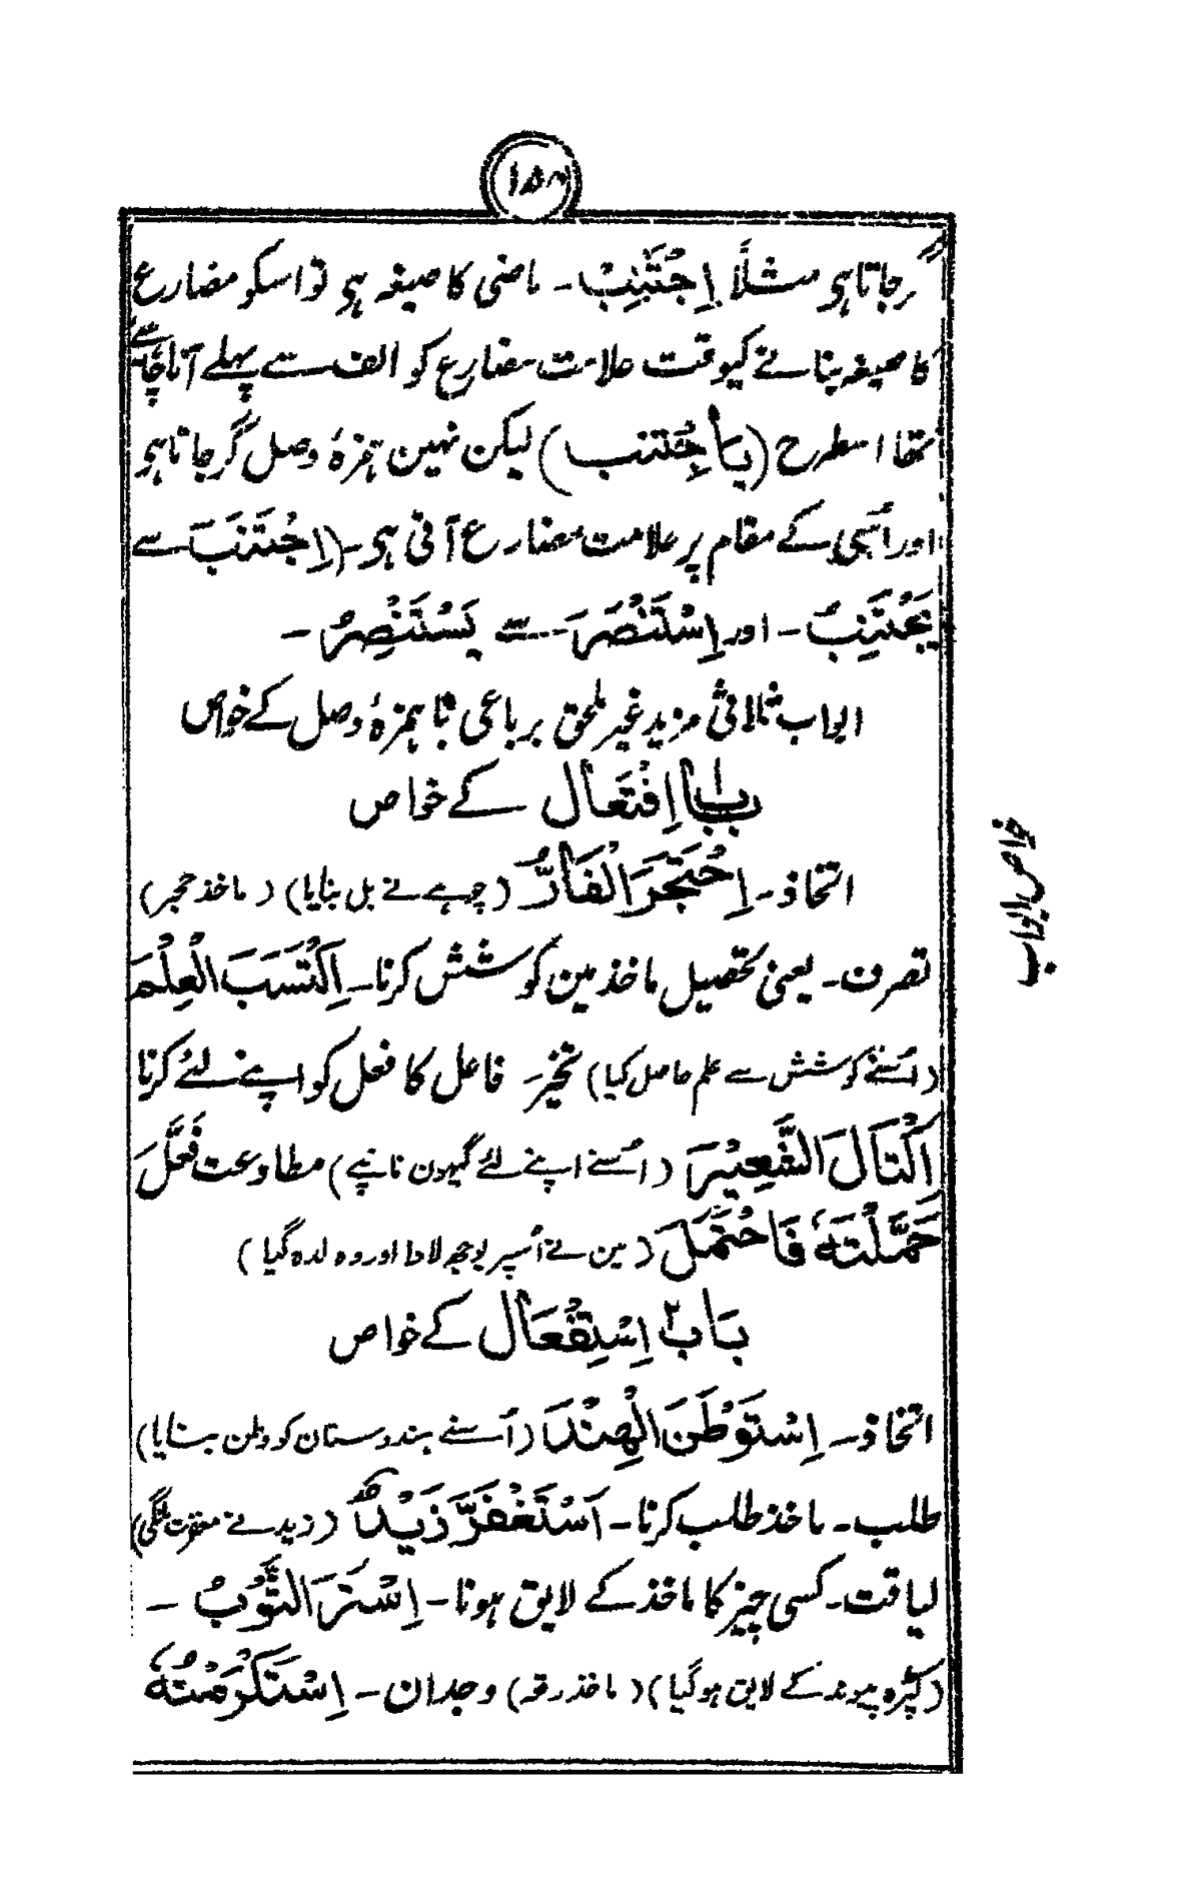 گرجاتا ہی مثلاً اِجْتَنَبَ۔ ماضی کا صیغہ ہی تو اسکو مضارع
کا صیغہ بنانے کیوقت علامت مضارع کو الف سے پہلے آنا چاہئے
تھا اسطرح (یَا جْتَنب) لیکن نہین ہمزۂ وصل گرجاتا ہی
اور اُسی کے مقام پر علامت مضارع آتی ہی۔ (اِجْتَنَبَ سے
یَجْتَنِبُ۔ اور اِسْتَنْصَرَ سے یَسْتَنْصِرُ۔
ابواب ثلاثی مزید غیر ملحق برباعی با ہمزۂ وصل کے خواص
بابِ۱ اِفْتَعَال کے خواص
اتخاذ۔ اِحْتَجَرَ الْفَارُّ (چوہے نے بل بنایا) (ماخذ حجر)
تصرف۔ یعنی تحصیل ماخذ مین کوشش کرنا۔ اِکْتَسَبَ الْعِلْمَ
(اُسنے کوشش سے علم حاصل کیا) تخیّر۔ فاعل کا فعل کو اپنے لئے کرنا
اِکْتَالَ الشَّعِیْرَ (اُسنے اپنے لئے گیہون ناپے) مطاوعت فَعَّلَ
حَمَّلْتُہٗ فَاحْتَمَلَ (مین نے اُسپر بوجھ لادا اور وہ لدہ گیا)
بَاب۲ اِسْتِفْعَال کے خواص
اتخاذ۔ اِسْتَوْطَنَ الْہِنْدَ (اُسنے ہندوستان کو وطن بنایا)
طلب۔ ماخذ طلب کرنا۔ اَسْتَغْفَرَ زَیْدٌ (زید نے مغفرت مانگی)
لیاقت۔ کسی چیز کا ماخذ کے لایق ہونا۔ اِسْتَرَ الثَّوْبُ۔
(کپڑہ پیوند کے لایق ہوگیا) (ماخذ رقعہ) وجدان۔ اِسْتَکْرَمْتُہٗ
خواص ابواب